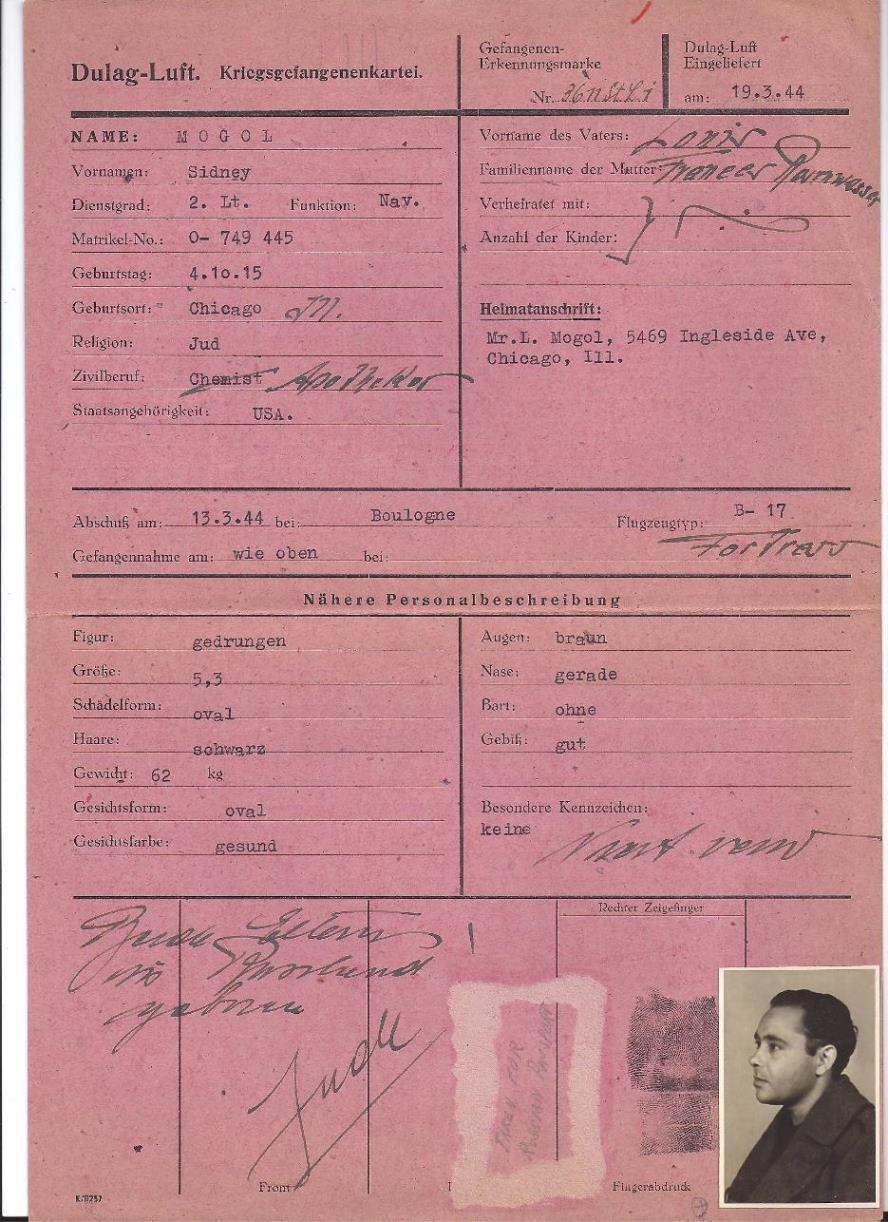 Dulag-Luft. Kriegsgefangenenkartei.
Gefangenen-
Erkennungsmarke
Nr.
Dulag-Luft
Eingeliefert
am: 19.3.44
NAME: MOGOL
Vornamen: Sidney
Dienstgrad: 2. Lt. Funktion: Nav.
Matrikel-No.: O- 749 445
Geburtstag: 4.10.15
Geburtsort: Chicago
Religion: Jud
Zivilberuf: Chemist Apotheker
Staatsangehörigkeit: USA.
Vorname des Vaters: Louis
Familienname der Mutter:
Verheiratet mit:
Anzahl der Kinder:
Heimatanschrift:
Mr.L. Mogol, 5469 Ingleside Ave,
Chicago, Ill.
Abschuß am: 13.3.44 bei: Boulogne Flugzeugtyp: B- 17
Fortress
Gefangennahme am: wie oben bei:
Nähere Personalbeschreibung
Figur: gedrungen
Größe: 5,3
Schädelform: oval
Haare: schwarz
Gewicht: 62 kg
Gesichtsform: oval
Gesichtsfarbe: gesund
Augen: braun
Nase: gerade
Bart: ohne
Gebiß: gut
Besondere Kennzeichen:
keine
Rechter Zeigefinger
Beide Eltern
in Russland
geboren
Jude
From
Fingerabdruck
K/0257